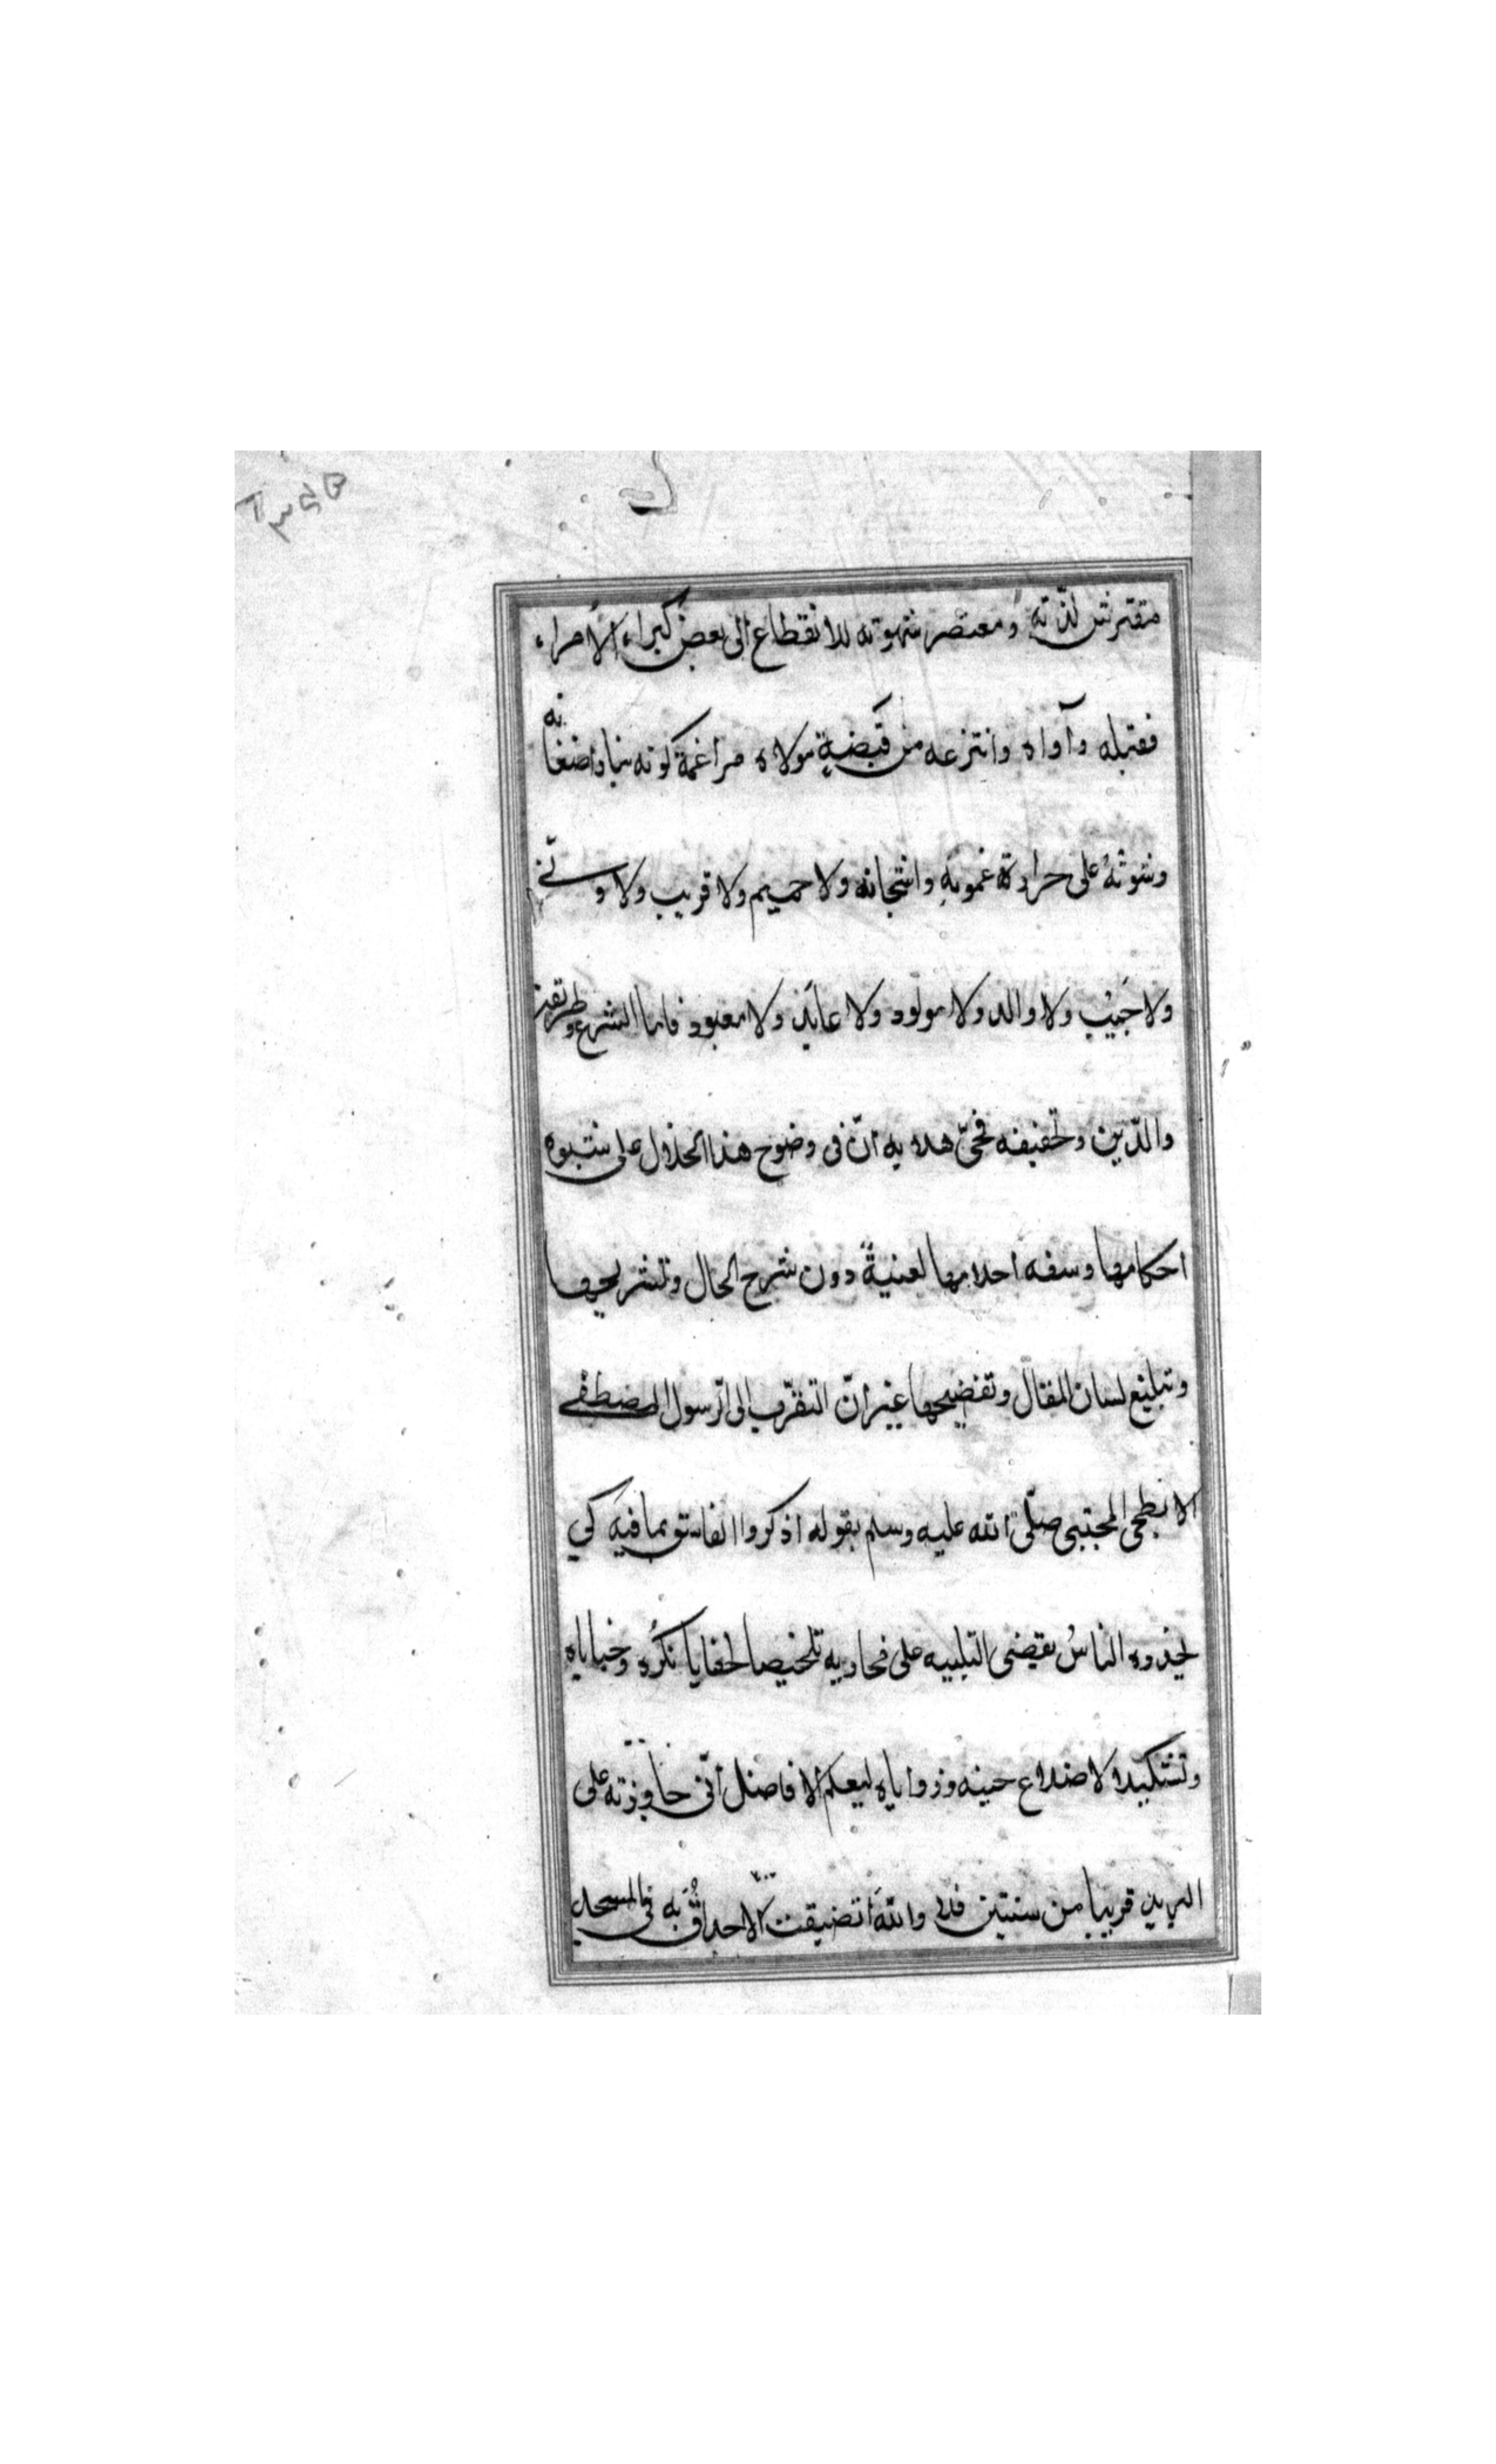 مفترش لذّته ومعتصر شهوته للانقطاع الى بعض كبراء الأمراء
فقبله وآواه وانتزعه من قبضة مولاه مراغمة كونه
على حرارة غمومه واشجانه ولا حميم ولا قريب ولا
ولا حَبيب ولا والد ولا مولود ولا عابد ولا معبود فاما الشرع وطريقته
والدّين وتحفيفه هدايه انّ فى وضوح هذا الخذلال على
احكامها وسفه احلامها لغنيةً دون شرح الحال وتشريحها
وتبليغ لسان المقال وتفضيحها غير انّ التقرّب الى الرسول المصطفى
الابطحى المجتبى صلّى الله عليه وسلم بقوله اذكروا الفاسق بما فيه كي
يحذره الناسُ يقتضى التنبيه على مخازيه تلخيصا لخفايا نكره وخباياه
لاضلاع حينه وزواياه ليعلم الافاضل أنّى جاورته على
البريد قريبا من سنتين فلم والله تضيقت الاحداق به فى المسجد